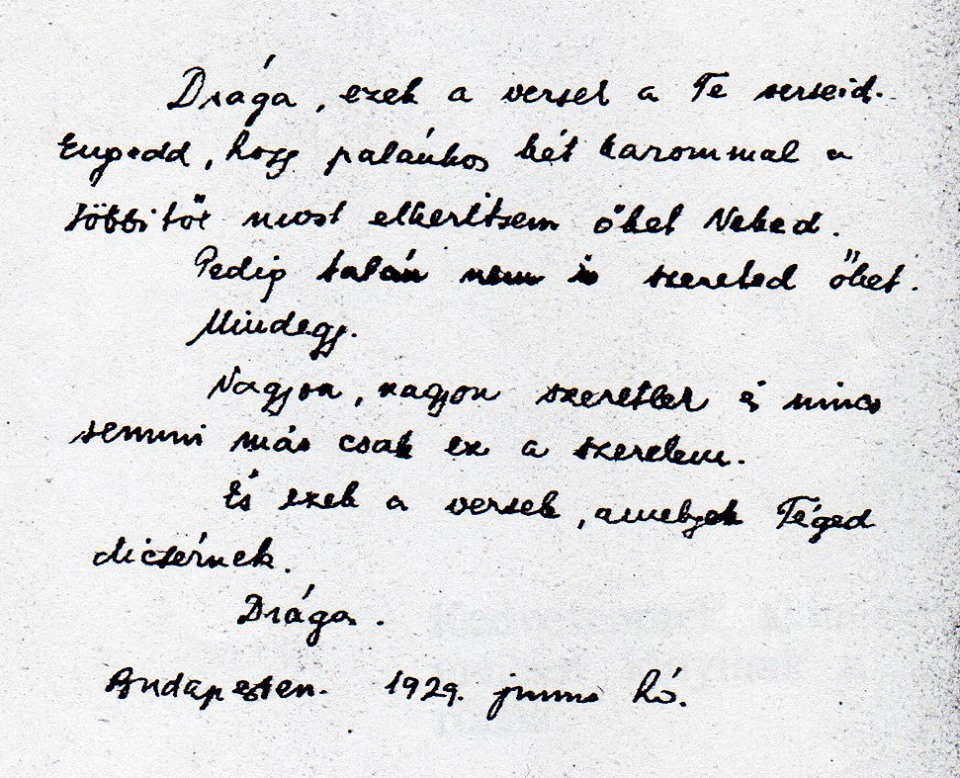 Drága, ezek a versek a Te verseid.
Engedd, hogy palánkos két karommal a
többitöl most elkerítsem őket Neked.
Pedig talán nem is szereted őket.
Mindegy.
Nagyon, nagyon szeretlek és nincs
semmi más csak ez a szerelem.
És ezek a versek, amelyek Téged
dicsérnek.
Drága.
Budapesten. 1929. junius hó.